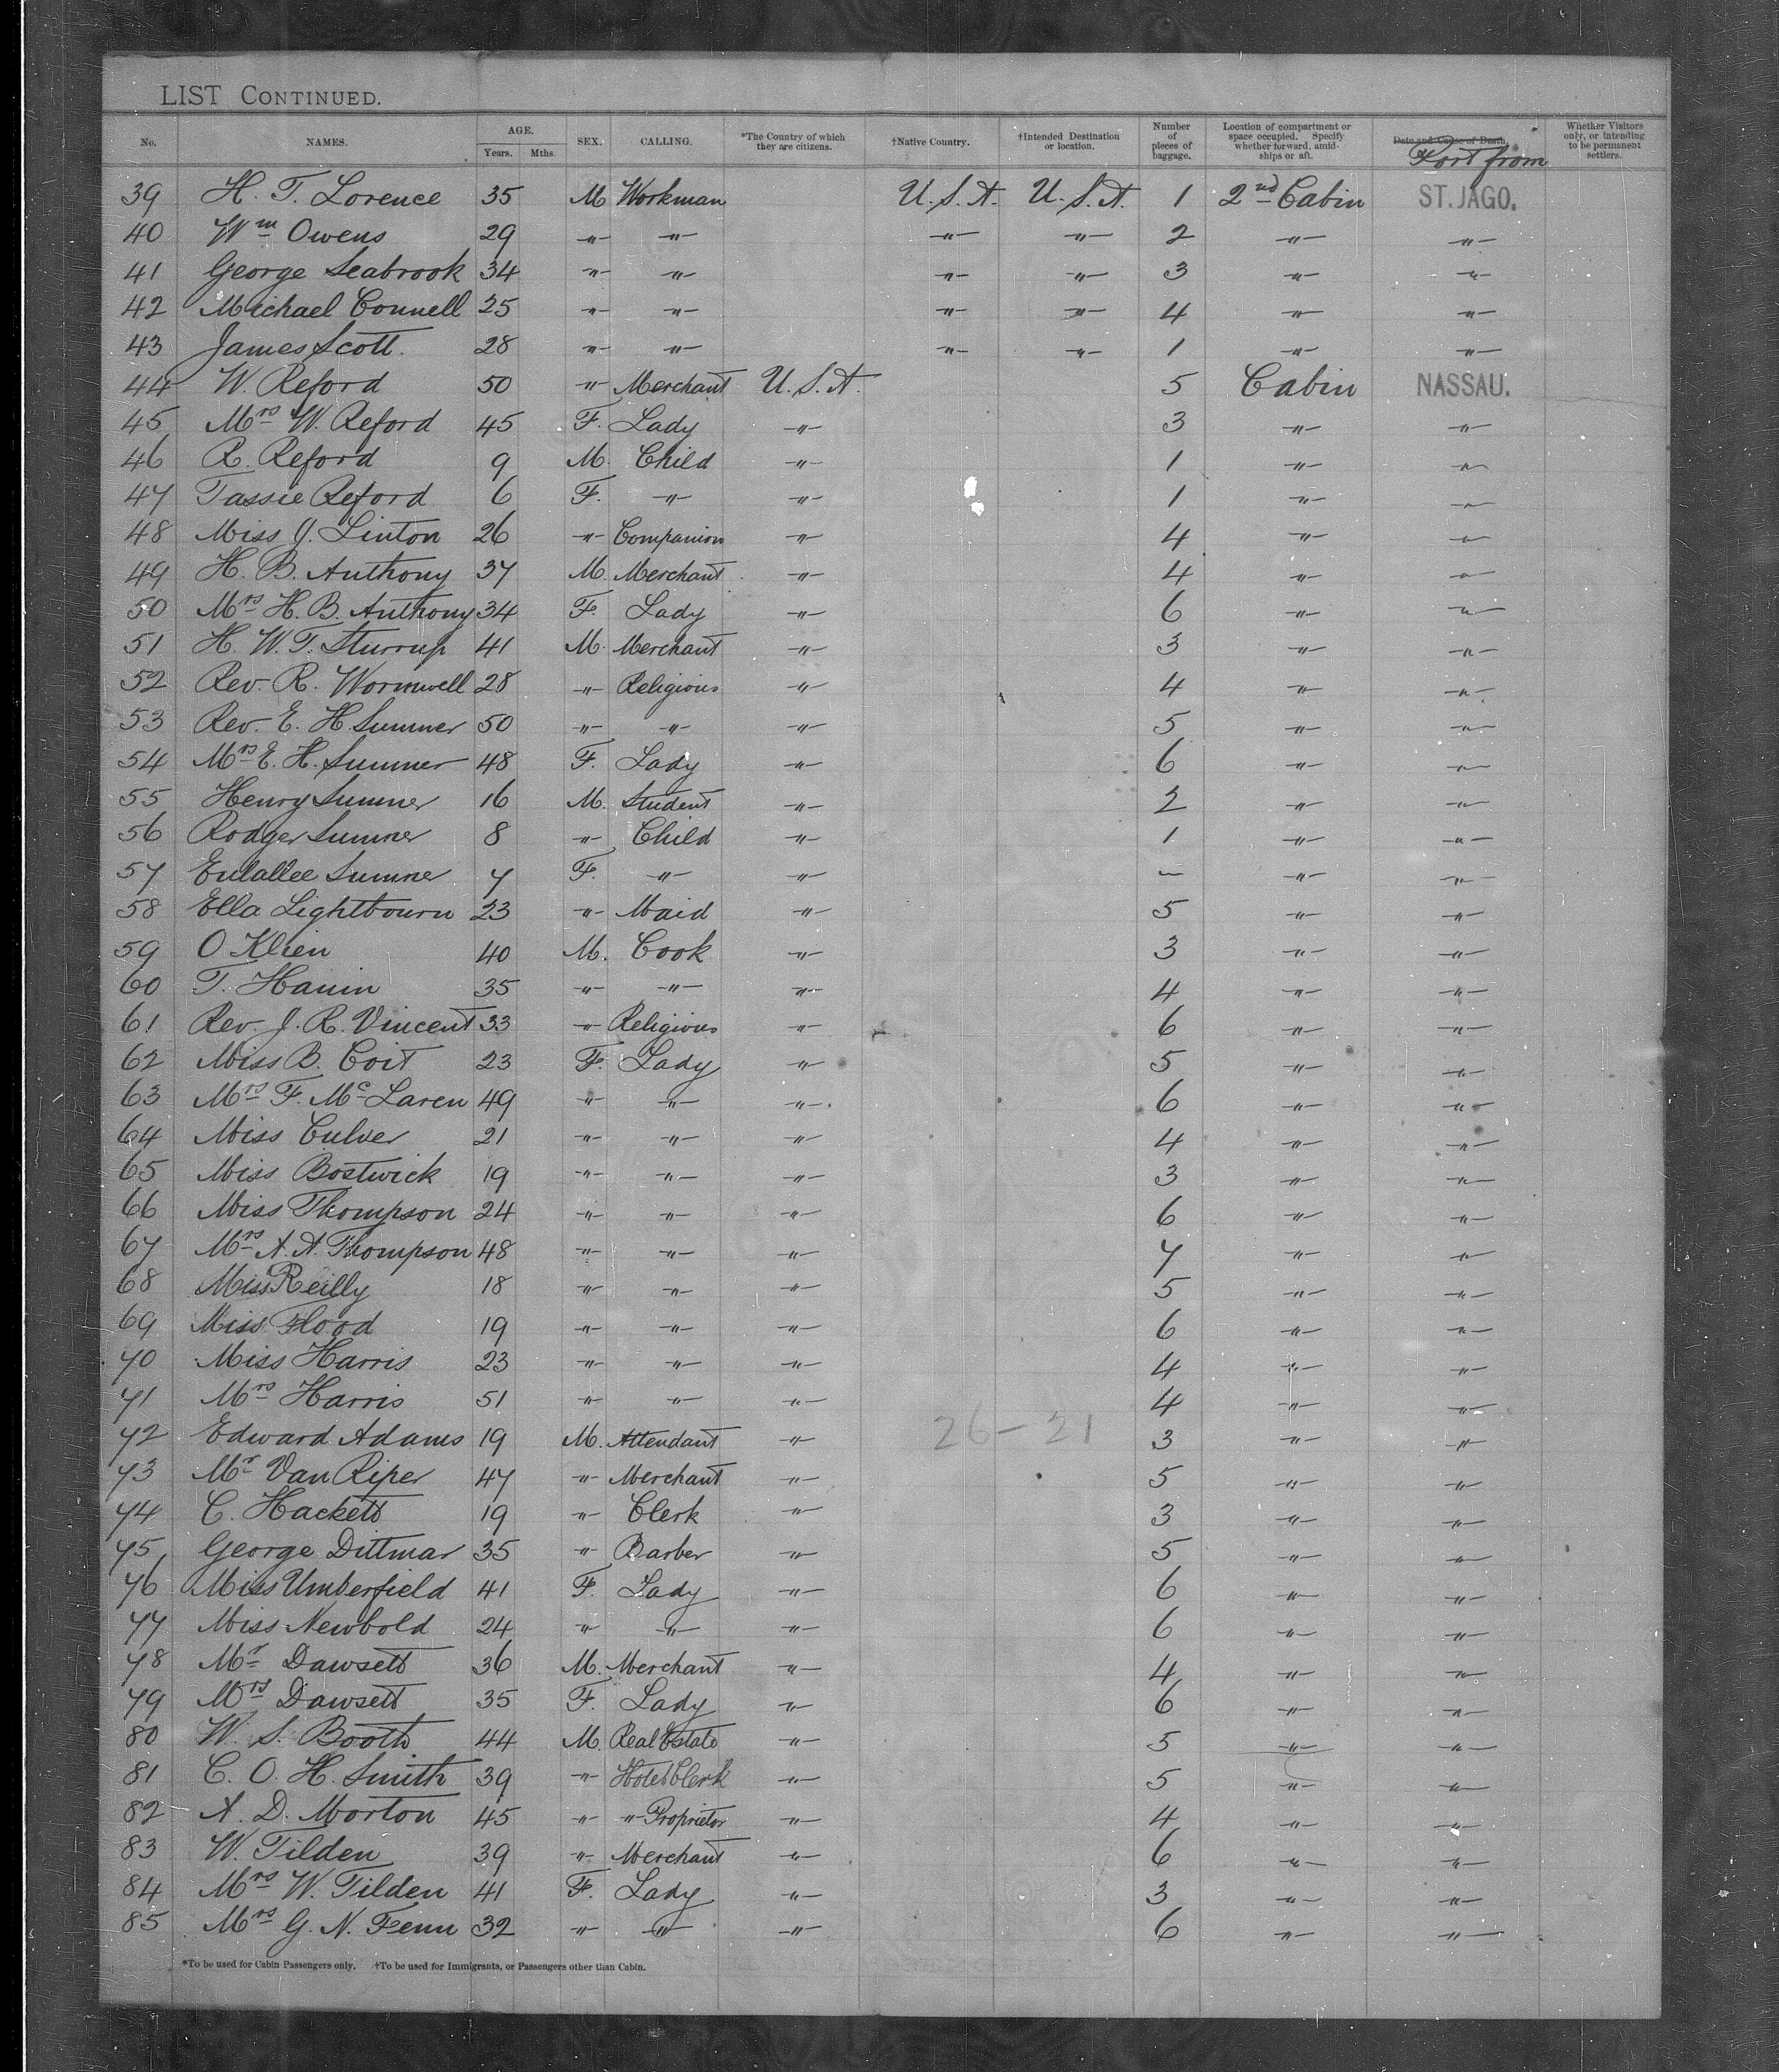 LIST CONTINUED.
No. NAMES. AGE. Years. Mths. SEX. CALLING. *The Country of which they are citizens. †Native Country. †Intended Destination or location. Number of pieces of baggage. Location of compartment or space occupied. Specify whether forward, amidships or aft. Date and Cause of Death. Port from Whether Visitors only, or intending to be permanent settlers.
39 H. T. Lorence 35 M Workman U.S.A. U.S.A. 1 2nd Cabin ST. JAGO.
40 Wm Owens 29 " " " " 2 " "
41 George Seabrook 34 " " " " 3 " "
42 Michael Connell 25 " " " " 4 " "
43 James Scott. 28 " " " " 1 " "
44 W. Reford 50 " Merchant U.S.A. 5 Cabin NASSAU.
45 Mrs W. Reford 45 F. Lady " 3 " "
46 R. Reford 9 M. Child " 1 " "
47 Tassie Reford 6 F. " " 1 " "
48 Miss J. Linton 26 " Companion " 4 " "
49 H. B. Anthony 37 M. Merchant " 4 " "
50 Mrs H. B. Anthony 34 F. Lady " 6 " "
51 H. W. T. Sturrup 41 M. Merchant " 3 " "
52 Rev. R. Wormwell 28 " Religious " 4 " "
53 Rev. E. H Sumner 50 " " " 5 " "
54 Mrs E. H. Sumner 48 F. Lady " 6 " "
55 Henry Sumner 16 M. Student " 2 " "
56 Rodger Sumner 8 " Child " 1 " "
57 Eulallee Sumner 7 F. " " — " "
58 Ella Lightbourn 23 " Maid " 5 " "
59 O Klien 40 M. Cook " 3 " "
60 T. Hanin 35 " " " 4 " "
61 Rev. J. R. Vincent 33 " Religious " 6 " "
62 Miss B. Coit 23 F. Lady " 5 " "
63 Mrs F. McLaren 49 " " " 6 " "
64 Miss Culver 21 " " " 4 " "
65 Miss Bostwick 19 " " " 3 " "
66 Miss Thompson 24 " " " 6 " "
67 Mrs A. A. Thompson 48 " " " 7 " "
68 Miss Reilly 18 " " " 5 " "
69 Miss Flood 19 " " " 6 " "
70 Miss Harris 23 " " " 4 " "
71 Mrs Harris 51 " " " 4 " "
72 Edward Adams 19 M. Attendant " 26 - 21 3 " "
73 Mr Van Riper 47 " Merchant " 5 " "
74 C. Hackett 19 " Clerk " 3 " "
75 George Dittmar 35 " Barber " 5 " "
76 Miss Umberfield 41 F. Lady " 6 " "
77 Miss Newbold 24 " " " 6 " "
78 Mr Dawsett 36 M. Merchant " 4 " "
79 Mrs Dawsett 35 F. Lady " 6 " "
80 W. S. Booth 44 M. Real Estate " 5 " "
81 C. O. H. Smith 39 " Hotel Clerk " 5 " "
82 A. D. Morton 45 " " Proprietor " 4 " "
83 W. Tilden 39 " Merchant " 6 " "
84 Mrs W. Tilden 41 F. Lady " 3 " "
85 Mrs G. N. Fenn 32 " " " 6 " "
*To be used for Cabin Passengers only. †To be used for Immigrants, or Passengers other than Cabin.